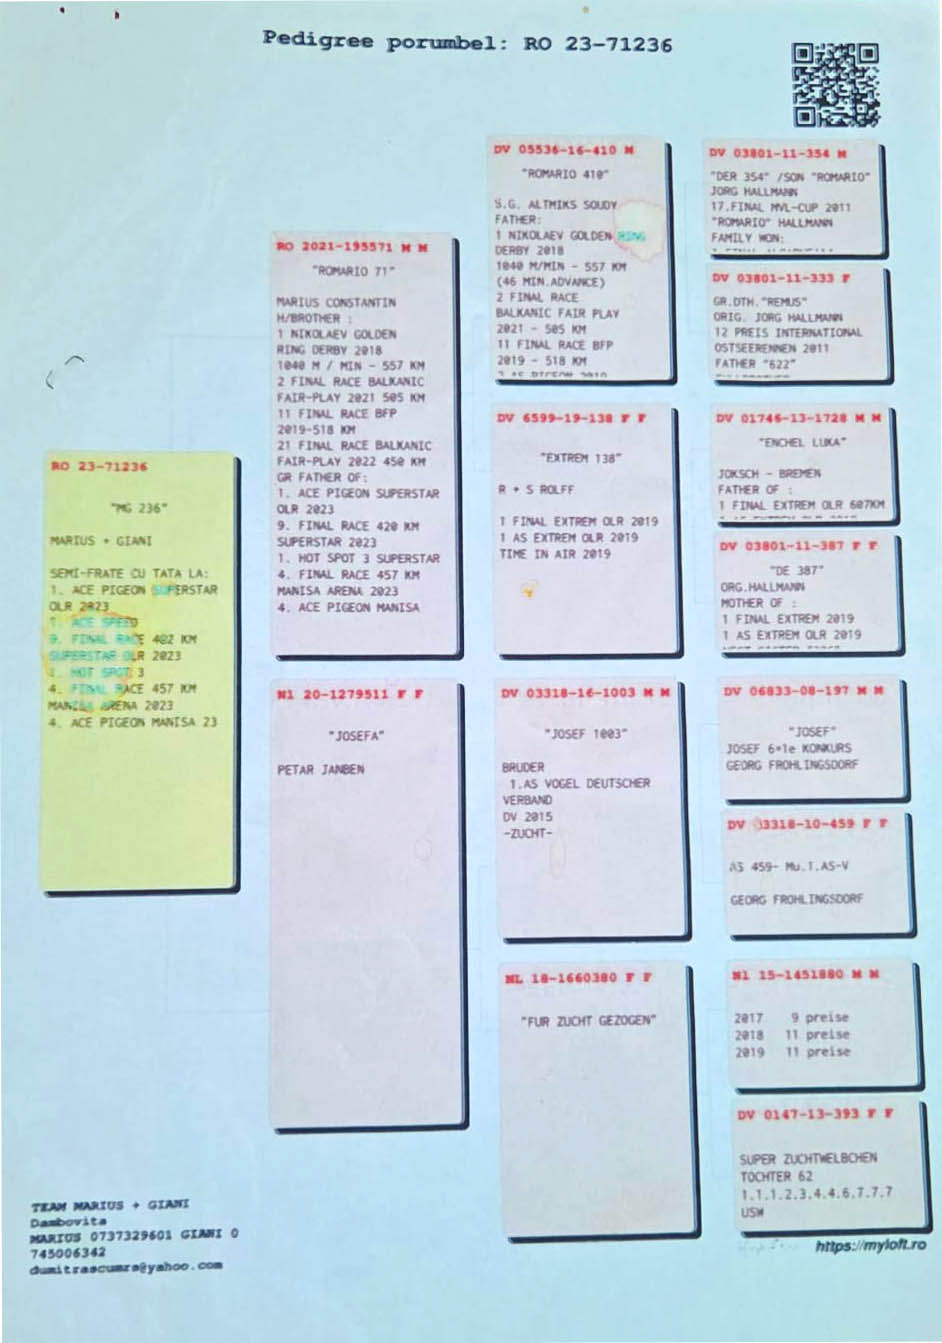 Pedigree porumbel: RO 23-71236
RO 23-71236
"MG 236"
MARIUS + GIANI
SEMI-FRATE CU TATA LA:
1. ACE PIGEON SUPERSTAR
OLR 2023
1. ACE SPEED
9. FINAL RACE 402 KM
SUPERSTAR OLR 2023
1. HOT SPOT 3
4. FINAL RACE 457 KM
MANISA ARENA 2023
4. ACE PIGEON MANISA 23
RO 2021-195571 M M
"ROMARIO 71"
MARIUS CONSTANTIN
H/BROTHER :
1 NIKOLAEV GOLDEN
RING DERBY 2018
1040 M / MIN - 557 KM
2 FINAL RACE BALKANIC
FAIR-PLAY 2021 505 KM
11 FINAL RACE BFP
2019-518 KM
21 FINAL RACE BALKANIC
FAIR-PLAY 2022 450 KM
GR FATHER OF:
1. ACE PIGEON SUPERSTAR
OLR 2023
9. FINAL RACE 420 KM
SUPERSTAR 2023
1. HOT SPOT 3 SUPERSTAR
4. FINAL RACE 457 KM
MANISA ARENA 2023
4. ACE PIGEON MANISA
Nl 20-1279511 F F
"JOSEFA"
PETAR JANBEN
DV 05536-16-410 M
"ROMARIO 410"
S.G. ALTMIKS SOUDY
FATHER:
1 NIKOLAEV GOLDEN RING
DERBY 2018
1040 M/MIN - 557 KM
(46 MIN.ADVANCE)
2 FINAL RACE
BALKANIC FAIR PLAY
2021 - 505 KM
11 FINAL RACE BFP
2019 - 518 KM
DV 6599-19-138 F F
"EXTREM 138"
R + S ROLFF
1 FINAL EXTREM OLR 2019
1 AS EXTREM OLR 2019
TIME IN AIR 2019
DV 03318-16-1003 M M
"JOSEF 1003"
BRUDER
1.AS VOGEL DEUTSCHER
VERBAND
DV 2015
-ZUCHT-
NL 18-1660380 F F
"FUR ZUCHT GEZOGEN"
DV 03801-11-354 M
"DER 354" /SON "ROMARIO"
JORG HALLMANN
17.FINAL MVL-CUP 2011
"ROMARIO" HALLMANN
FAMILY WON:
DV 03801-11-333 F
GR.DTH."REMUS"
ORIG. JORG HALLMANN
12 PREIS INTERNATIONAL
OSTSEERENNEN 2011
FATHER "622"
DV 01746-13-1728 M M
"ENCHEL LUKA"
JOKSCH - BREMEN
FATHER OF :
1 FINAL EXTREM OLR 607KM
DV 03801-11-387 F F
"DE 387"
ORG.HALLMANN
MOTHER OF :
1 FINAL EXTREM 2019
1 AS EXTREM OLR 2019
DV 06833-08-197 M M
"JOSEF"
JOSEF 6*1e KONKURS
GEORG FROHLINGSDORF
DV 03318-10-459 F F
AS 459- Mu.1.AS-V
GEORG FROHLINGSDORF
Nl 15-1451880 M M
2017 9 preise
2018 11 preise
2019 11 preise
DV 0147-13-393 F F
SUPER ZUCHTWELBCHEN
TOCHTER 62
1.1.1.2.3.4.4.6.7.7.7
USW
TEAM MARIUS + GIANI
Dambovita
MARIUS 0737329601 GIANI 0
745006342
dumitrascumrs@yahoo.com
https://myloft.ro